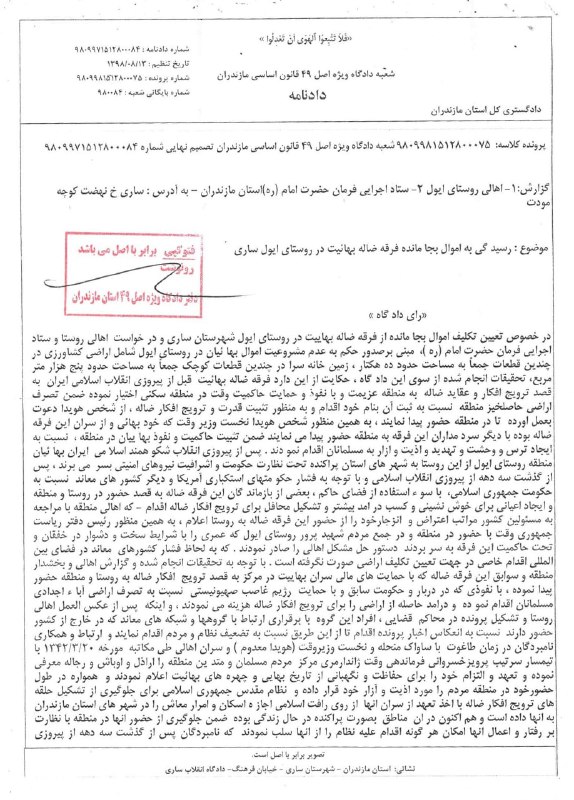 «فَلاَ تَتَّبِعوُا اَلهَوَی اَن تَعدلُوا »
شماره دادنامه : ۹۸۰۹۹۷۱۵۱۲۸۰۰۰۸۴
تاریخ تنظیم : ۱۳۹۸/۰۸/۱۳
شماره پرونده : ۹۸۰۹۹۸۱۵۱۲۸۰۰۰۷۵
شماره بایگانی شعبه : ۹۸۰۰۸۴
شعبه دادگاه ویژه اصل ۴۹ قانون اساسی مازندران
دادنامه
دادگستری کل استان مازندران
پرونده کلاسه: ۹۸۰۹۹۸۱۵۱۲۸۰۰۰۷۵ شعبه دادگاه ویژه اصل ۴۹ قانون اساسی مازندران تصمیم نهایی شماره ۹۸۰۹۹۷۱۵۱۲۸۰۰۰۸۴
گزارش:۱- اهالی روستای ایول ۲- ستاد اجرایی فرمان حضرت امام (ره)استان مازندران – به آدرس : ساری خ نهضت کوچه
مودت
فتوکپی برابر با اصل می باشد
رونوشت
دفتر دادگاه ویژه اصل ۴۹ استان مازندران
موضوع : رسید گی به اموال بجا مانده فرقه ضاله بهائیت در روستای ایول ساری
«رای داد گاه »
در خصوص تعیین تکلیف اموال بجا مانده از فرقه ضاله بهاییت در روستای ایول شهرستان ساری و در خواست اهالی روستا و ستاد
اجرایی فرمان حضرت امام (ره )، مبنی برصدور حکم به عدم مشروعیت اموال بها ئیان در روستای ایول شامل اراضی کشاورزی در
چندین قطعات جمعاً به مساحت حدود ده هکتار ، زمین خانه سرا در چندین قطعات کوچک جمعاً به مساحت حدود پنج هزار متر
مربع، تحقیقات انجام شده از سوی این داد گاه ، حکایت از این دارد فرقه بهائیت قبل از پیروزی انقلاب اسلامی ایران به
قصد ترویج افکار و عقاید ضاله به منطقه عزیمت و با نفوذ و حمایت حاکمیت وقت در منطقه سکنی اختیار نموده ضمن تصرف
اراضی حاصلخیز منطقه نسبت به ثبت آن بنام خود اقدام و به منظور تثبیت قدرت و ترویج افکار ضاله ، از شخص هویدا دعوت
بعمل اورده تا در منطقه حضور پیدا نمایند ، به همین منظور شخص هویدا نخست وزیر وقت که خود بهائی و از سران این فرقه
ضاله بوده با دیگر سرد مداران این فرقه به منطقه حضور پیدا می نمایند ضمن تثبیت حاکمیت و نفوذ بها ییان در منطقه ، نسبت به
ایجاد ترس و وحشت و تهدید و اذیت و ازار به مسلمانان اقدام نمو دند . پس از پیروزی انقلاب شکو همند اسلا می ایران بها ئیان
منطقه روستای ایول از این روستا به شهر های استان پراکنده تحت نظارت حکومت و اشرافیت نیروهای امنیتی بسر می برند ، پس
از گذشت سه دهه از پیروزی انقلاب اسلامی و با توجه به فشار حکو متهای استکباری آمریکا و دیگر کشور های معاند نسبت به
حکومت جمهوری اسلامی، با سو ء استفاده از فضای حاکم ، بعضی از بازماند گان این فرقه ضاله به قصد حضور در روستا و منطقه
و ایجاد اعیانی برای خوش نشینی و کسب در امد بیشتر و تشکیل محافل برای ترویج افکار ضاله اقدام – که اهالی منطقه با مراجعه
به مسئولین کشور مراتب اعتراض و انزجارخود را از حضور این فرقه ضاله به روستا اعلام ، به همین منظور رئیس دفتر ریاست
جمهوری وقت با حضور در منطقه و در جمع مردم شهید پرور روستای ایول که عمری را با شرایط سخت و دشوار در خفقان و
تحت حاکمیت این فرقه به سر بردند دستور حل مشکل اهالی را صادر نمودند . که به لحاظ فشار کشورهای معاند در فضای بین
المللی اقدام خاصی در جهت تعیین تکلیف اراضی صورت نگرفته است . با توجه به تحقیقات انجام شده و گزارش اهالی و بخشدار
منطقه و سوابق این فرقه ضاله که با حمایت های مالی سران بهاییت در مرکز به قصد ترویج افکار ضاله به روستا و منطقه حضور
پیدا نموده ، با نفوذی که در دربار و حکومت سابق و با حمایت رژیم غاصب صهیونیستی نسبت به تصرف اراضی آبا ء اجدادی
مسلمانان اقدام نمو ده و درامد حاصله از اراضی را برای ترویج افکار ضاله هزینه می نمودند ، و اینکه پس از عکس العمل اهالی
روستا و تشکیل پرونده در محاکم قضایی ، افراد این گروه با برقراری ارتباط با گروهها و شبکه های معاند که در خارج از کشور
حضور دارند نسبت به انعکاس اخبار پرونده اقدام تا از این طریق نسبت به تضعیف نظام و مردم اقدام نمایند و ارتباط و همکاری
نامبردگان در زمان طاغوت با ساواک منحله و نخست وزیروقت (هویدا معدوم ) و سران اهالی طی مکاتبه مورخه ۱۳۴۲/۳/۲۰ با
تیمسار سرتیپ پرویزخسروانی فرماندهی وقت ژاندارمری مرکز مردم مسلمان و متد ین منطقه را اراذل و اوباش و رجاله معرفی
نموده و تعهد و التزام خود را برای حفاظت و نگهبانی از تاریخ بهایی و چهره های بهائیت اعلام نمودند و همواره در طول
حضورخود در منطقه مردم را مورد اذیت و آزار خود قرار داده و نظام مقدس جمهوری اسلامی برای جلوگیری از تشکیل حلقه
های ترویج افکار ضاله با اخذ تعهد از سران انها از روی رافت اسلامی اجاز ه اسکان و امرار معاش را در شهر های استان مازندران
به انها داده است و هم اکنون در ان مناطق بصورت پراکنده در حال زندگی بوده ضمن جلوگیری از حضور انها در منطقه با نظارت
بر رفتار و اعمال انها امکان هر گونه اقدام علیه نظام را از انها سلب نمودند که نامبردگان پس از گذشت سه دهه از پیروزی
تصویر برابر با اصل است.
نشانی: استان مازندران - شهرستان ساری - خیابان فرهنگ- دادگاه انقلاب ساری